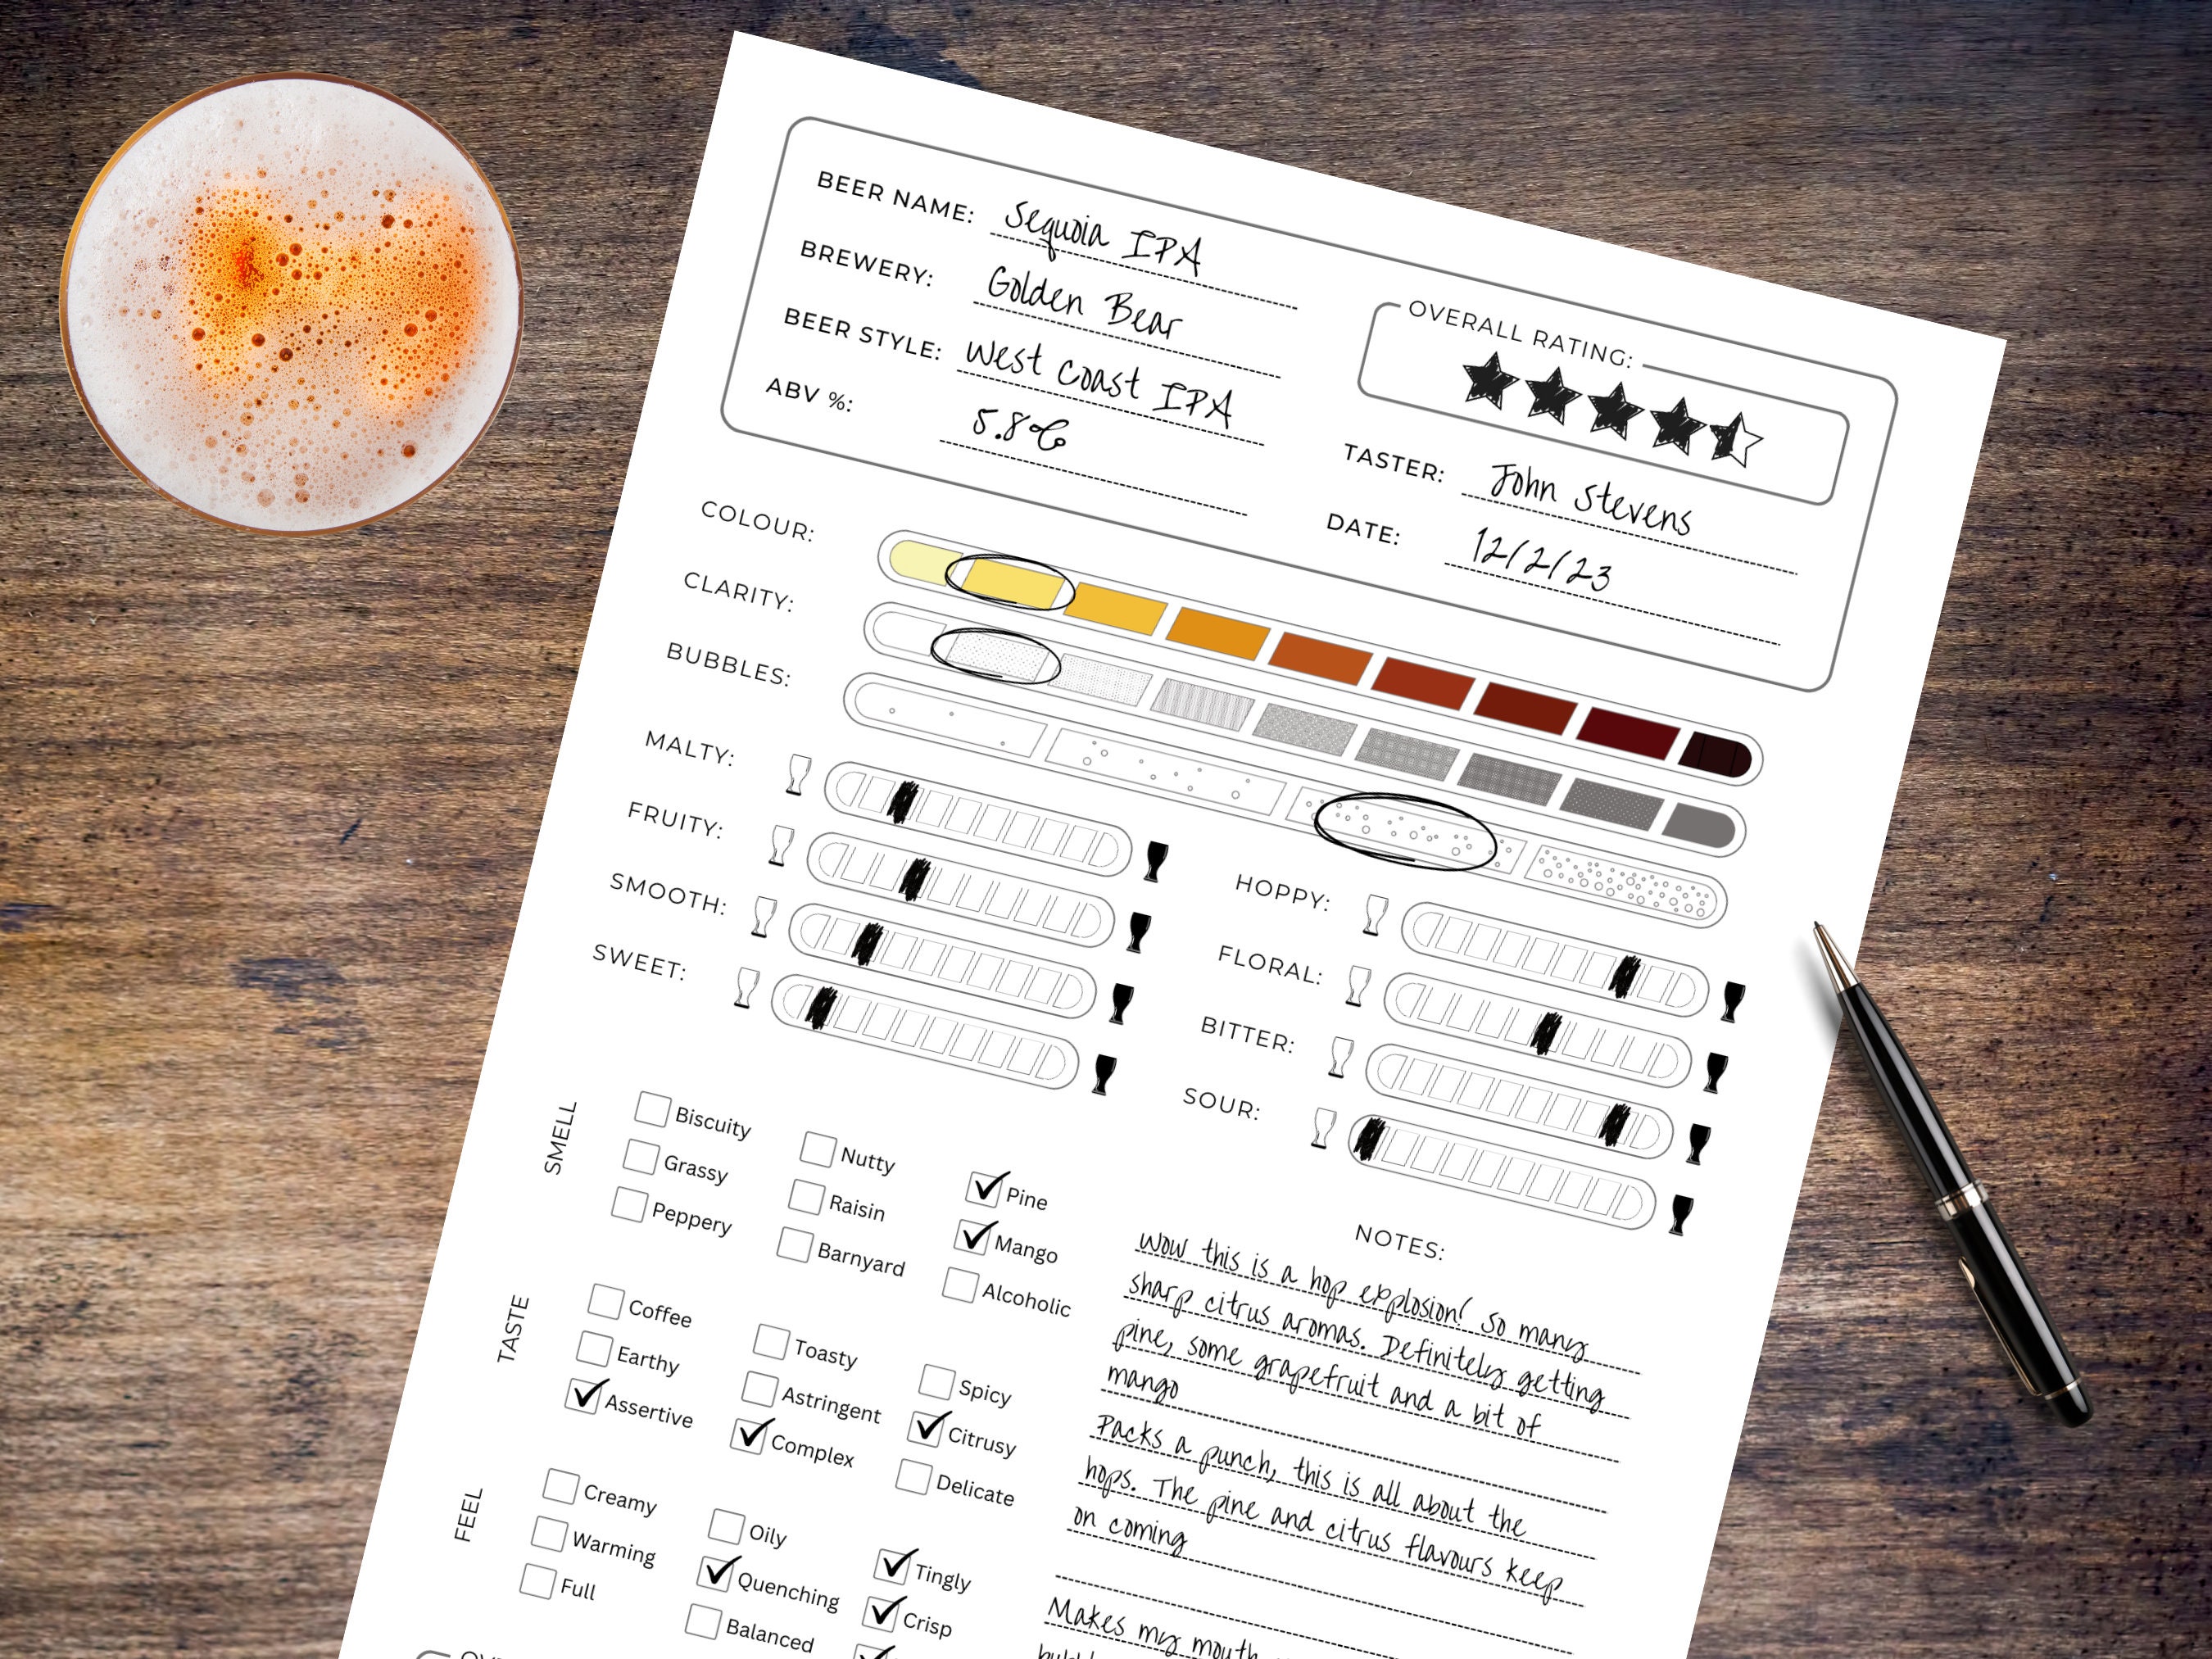 BEER NAME: Sequoia IPA
BREWERY: Golden Bear
BEER STYLE: West Coast IPA
ABV %: 5.8%
OVERALL RATING:
TASTER: John Stevens
DATE: 12/2/23
COLOUR:
CLARITY:
BUBBLES:
MALTY:
FRUITY:
SMOOTH:
SWEET:
HOPPY:
FLORAL:
BITTER:
SOUR:
SMELL
Biscuity Nutty Pine
Grassy Raisin Mango
Peppery Barnyard Alcoholic
TASTE
Coffee Toasty Spicy
Earthy Astringent Citrusy
Assertive Complex Delicate
FEEL
Creamy Oily Tingly
Warming Quenching Crisp
Full Balanced
NOTES:
Wow this is a hop explosion! So many
sharp citrus aromas. Definitely getting
pine, some grapefruit and a bit of
mango
Packs a punch, this is all about the
hops. The pine and citrus flavours keep
on coming
Makes my mouth